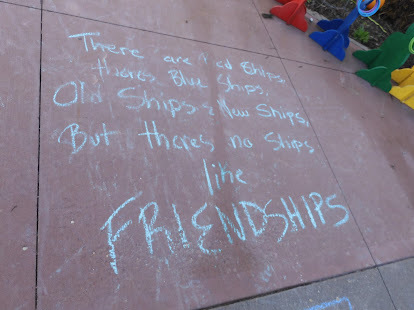 There are Red Ships,
theres Blue Ships,
Old Ships & New Ships,
But theres no Ships
like
FRIENDSHIPS